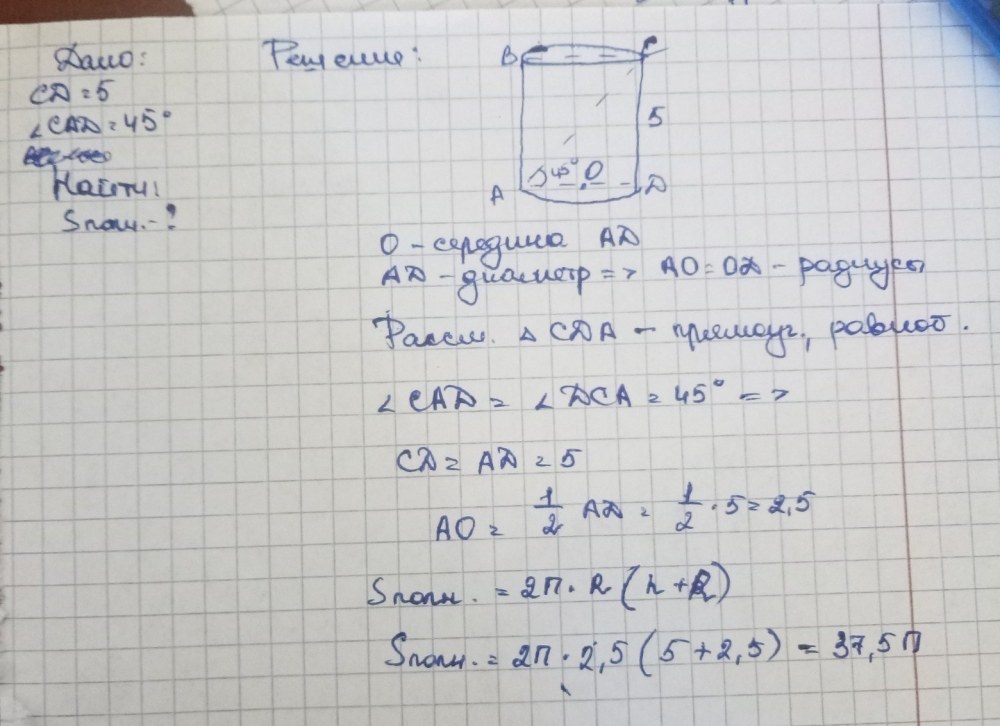 Дано:
CD = 5
∠CAD = 45°
Найти:
Sполн. - ?
Решение:
B C
5
45° O
A D
O - середина AD
AD - диаметр => AO = OD - радиусы
Рассм. △ CDA - прямоуг., равноб.
∠CAD = ∠DCA = 45° =>
CD = AD = 5
AO = 1/2 AD = 1/2 · 5 = 2,5
Sполн. = 2π · R (h + R)
Sполн. = 2π · 2,5 (5 + 2,5) = 37,5π